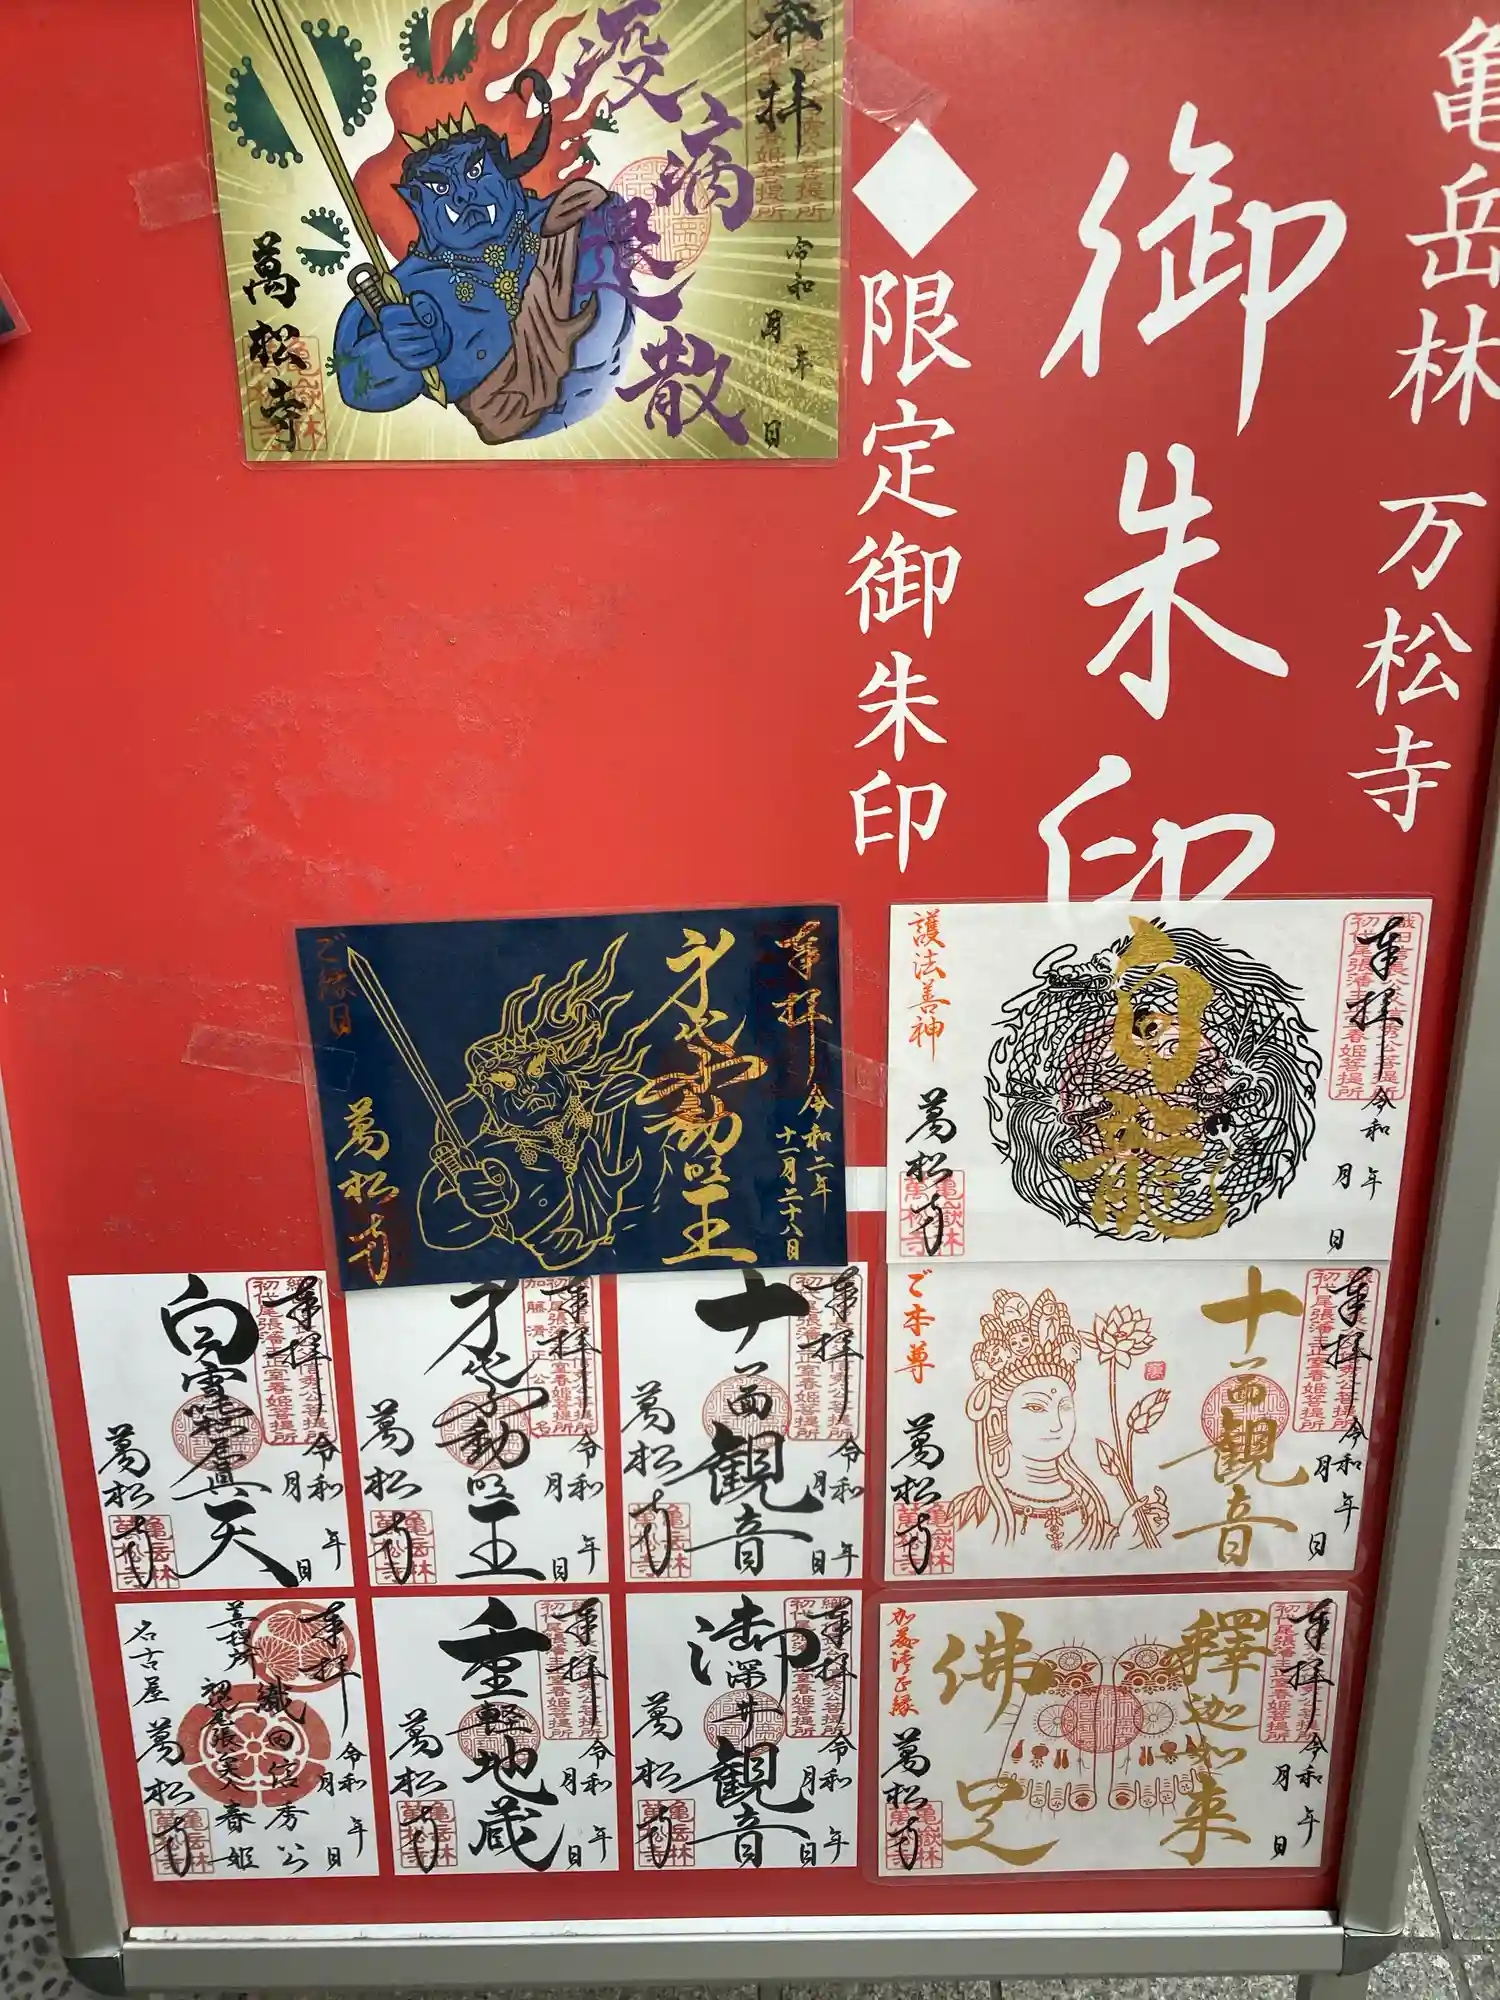 亀岳林 万松寺
御朱印
◆限定御朱印
奉拝
令和 年 月 日
疫病退散
萬松寺
奉拝
令和二年
十一月二十八日
不動明王
ご縁日
萬松寺
奉拝
令和 年 月 日
白龍
護法善神
萬松寺
奉拝
令和 年 月 日
十一面観音
ご本尊
萬松寺
奉拝
令和 年 月 日
十一面観音
萬松寺
亀岳林
奉拝
令和 年 月 日
不動明王
萬松寺
亀岳林
奉拝
令和 年 月 日
白雪稲荷天
萬松寺
亀岳林
奉拝
令和 年 月 日
釋迦如来
佛足
加藤清正縁
萬松寺
奉拝
令和 年 月 日
御深井観音
萬松寺
亀岳林
奉拝
令和 年 月 日
重軽地蔵
萬松寺
亀岳林
奉拝
令和 年 月 日
織田信秀公
春姫
菩提所
名古屋
萬松寺